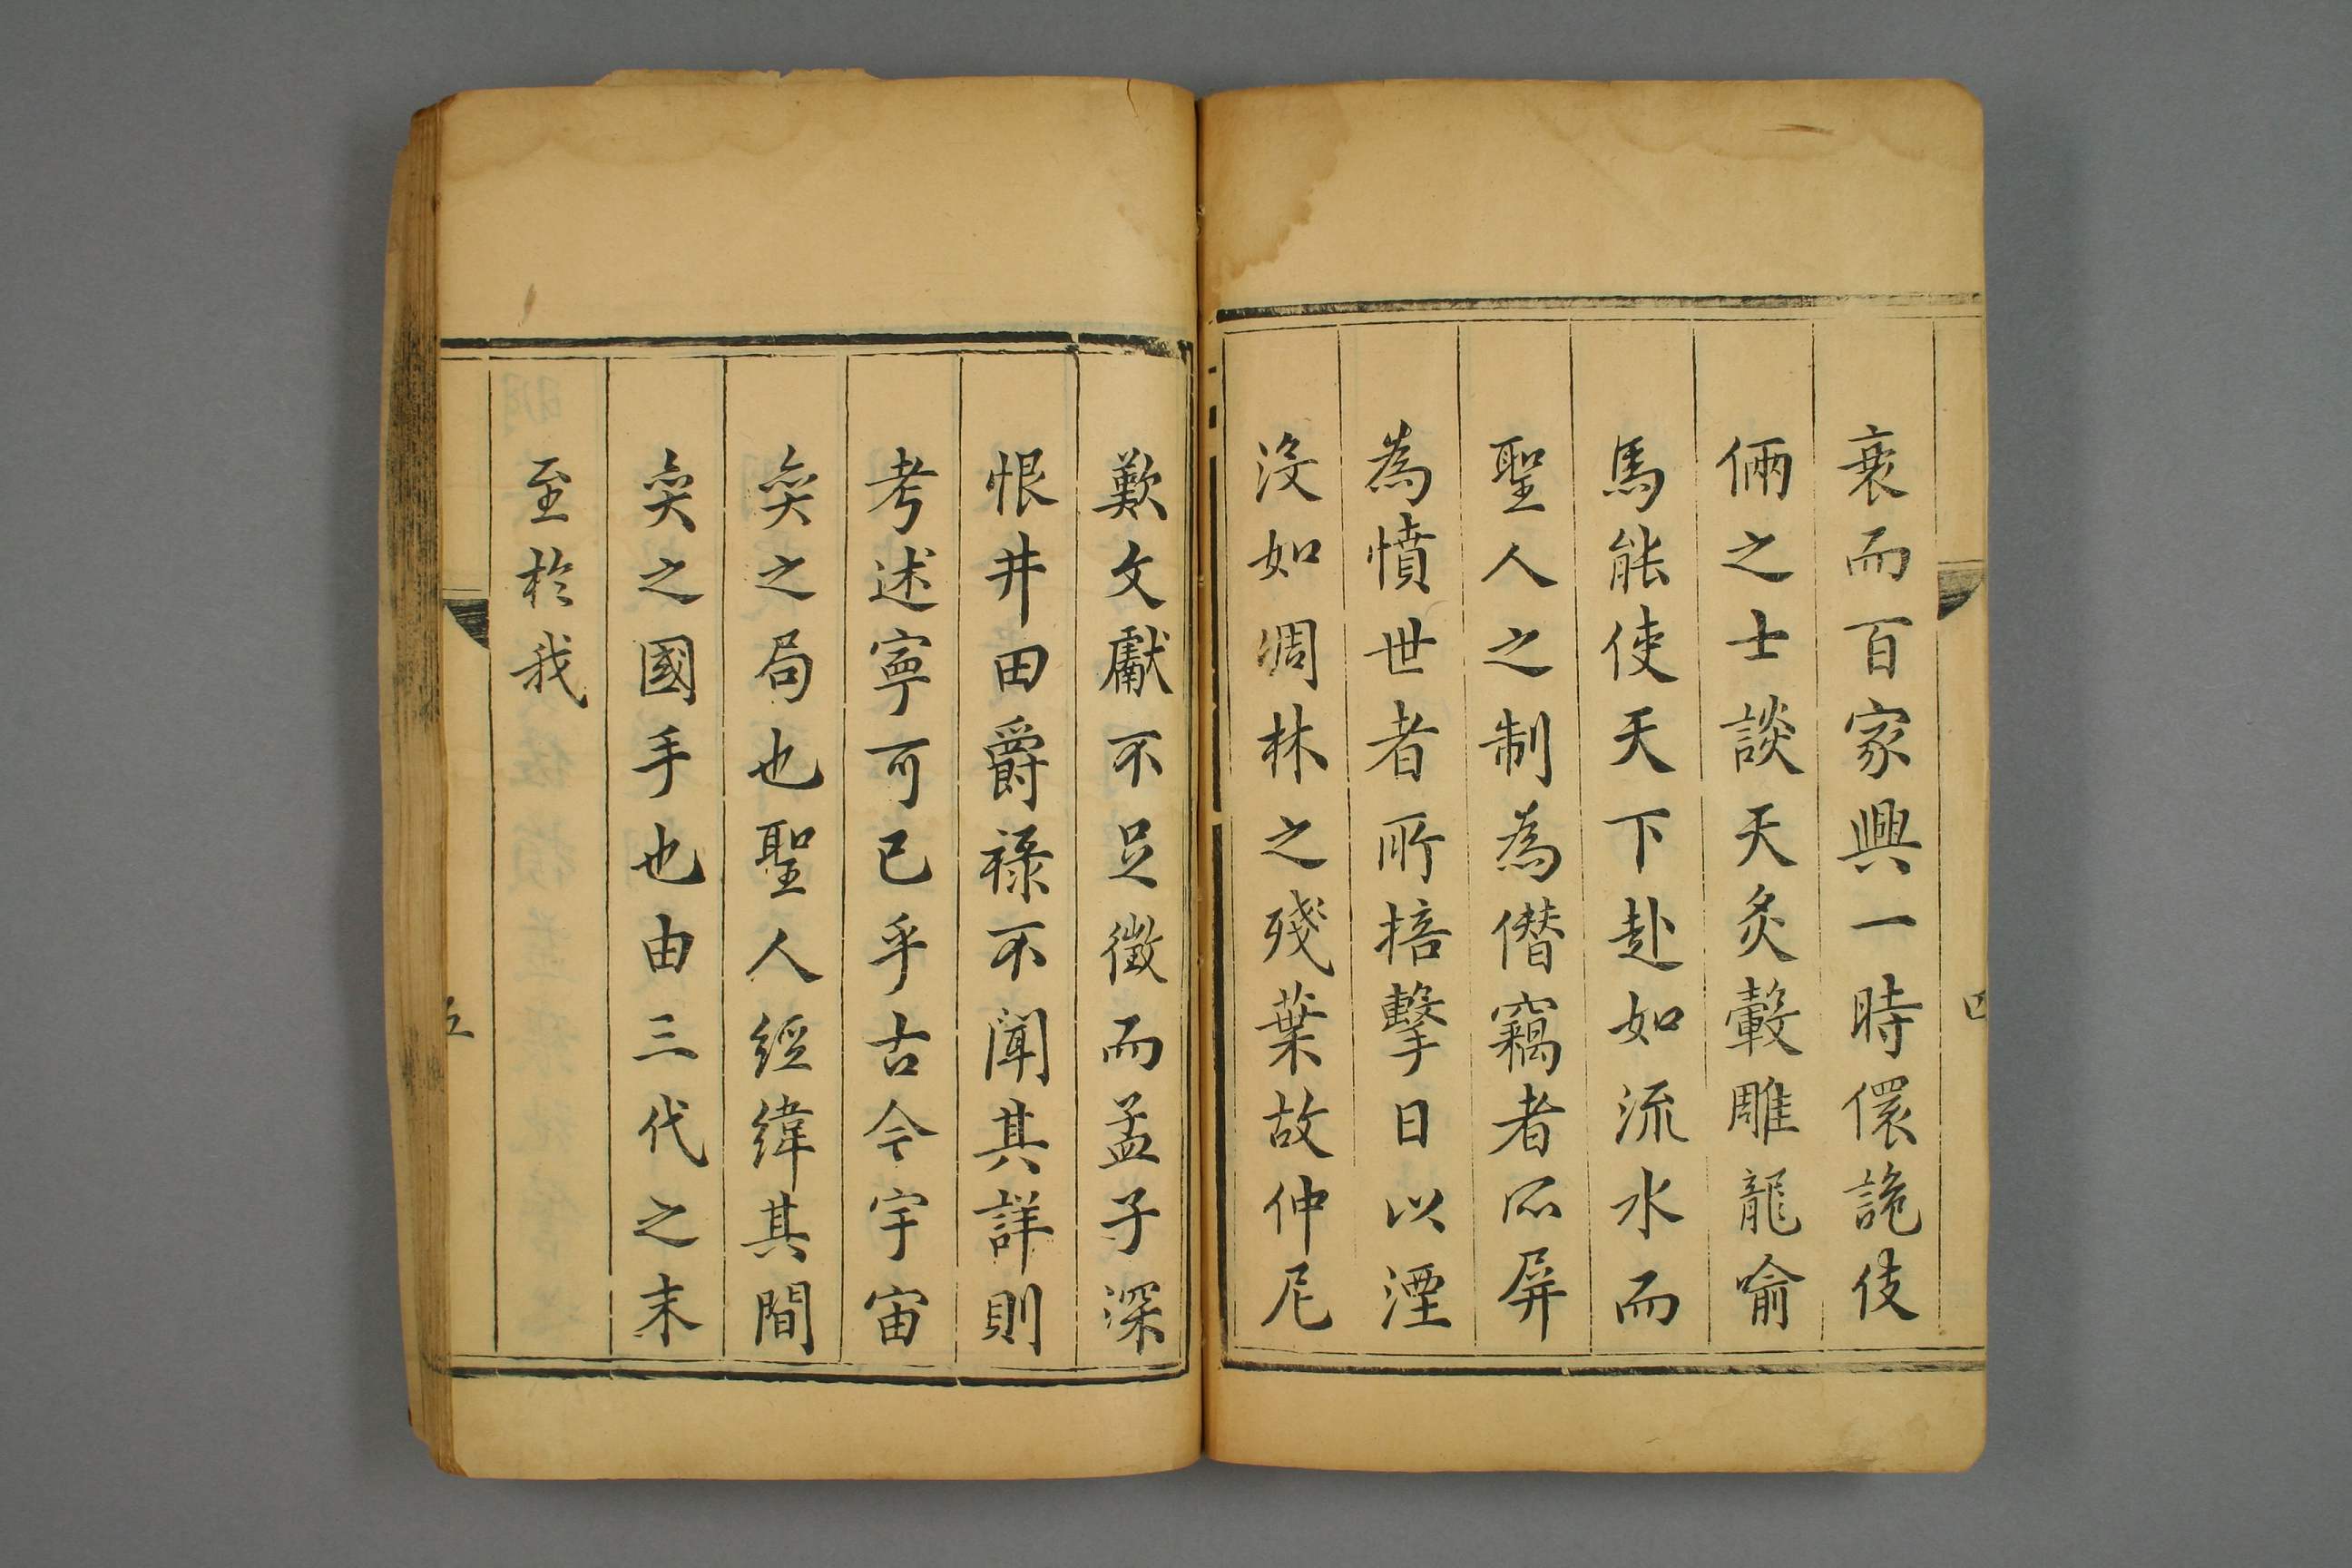 衰而百家興一時儇詭伎
倆之士談天炙轂雕龍喻
馬能使天下赴如流水而
聖人之制為僭竊者𠩄屏
為憤世者所掊擊日以湮
沒如凋林之殘葉故仲尼
四
歎文獻不足徵而孟子深
恨井田爵祿不聞其詳則
考述寧可已乎古今宇宙
奕之局也聖人經緯其間
奕之國手也由三代之末
至於我
五